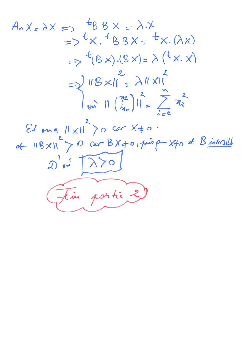 AnX = λX ⟹ ᵗB B X = λ.X
⟹ ᵗX. ᵗB B X = ᵗX.(λX)
⟹ ᵗ(BX).(BX) = λ(ᵗX.X)
⟹ { ||BX||² = λ||X||²
où ||(x₁ ⋮ xₙ)||² = Σ xᵢ²
Et on a ||X||² > 0 car X ≠ 0.
et ||BX||² > 0 car BX ≠ 0, puisque X ≠ 0 et B inversible
D'où λ > 0
Fin partie 2